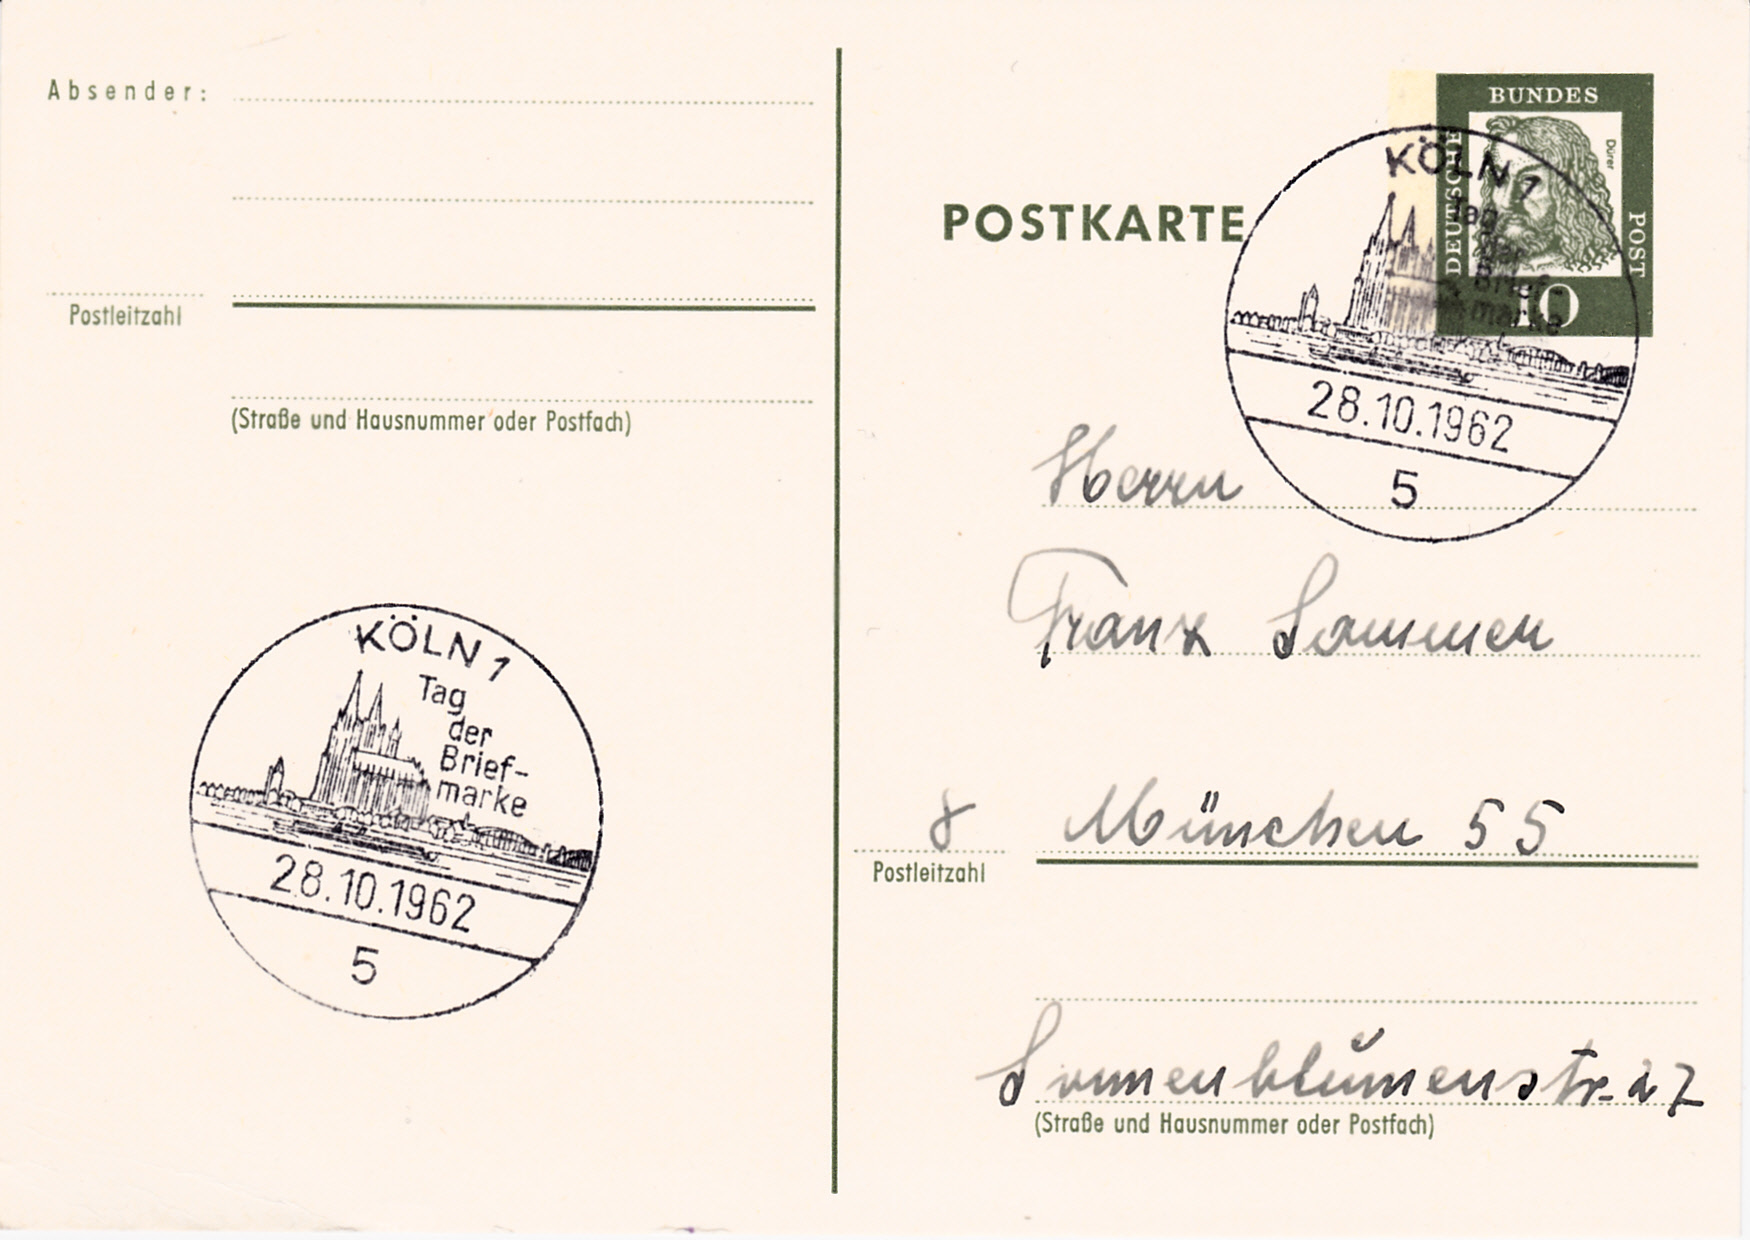 Absender:
Postleitzahl
(Straße und Hausnummer oder Postfach)
KÖLN 1
Tag
der
Brief-
marke
28.10.1962
5
POSTKARTE
BUNDES
DEUTSCHE
POST
Dürer
10
KÖLN 1
Tag
der
Brief-
marke
28.10.1962
5
Herrn
Franz Sommer
8 München 55
Postleitzahl
Sonnenblumenstr. 27
(Straße und Hausnummer oder Postfach)